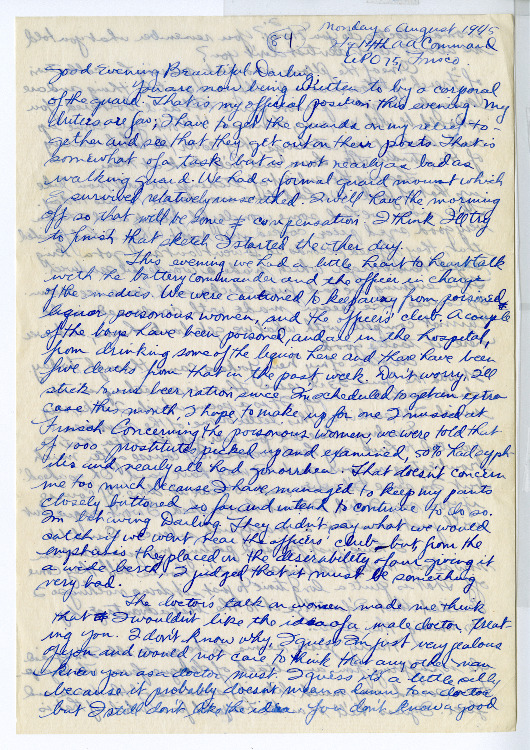 Monday 6 August 1945
64
Hq 14th AA Command
APO 75, Frisco.
Good Evening Beautiful Darling,
You are now being written to by a corporal
of the guard. That is my official position this evening. My
duties are few; I have to get the guards on my relief to-
gether and see that they get out on their posts. That is
somewhat of a task but is not nearly as bad as
walking guard. We had a formal guard mount which
I survived relatively unscathed. I will have the morning
off so that will be some compensation. I think I'll try
to finish that sketch I started the other day.
This evening we had a little heart to heart talk
with the battery commander and the officer in charge
of the medics. We were cautioned to keep away from poisoned
liquor, poisonous women, and the officers' club. A couple
of the boys have been poisoned, and are in the hospital,
from drinking some of the liquor here and there have been
five deaths from that in the past week. Don't worry, I'll
stick to our beer ration since I'm scheduled to get an extra
case this month, I hope to make up for one I missed at
Finsch. Concerning the poisonous women, we were told that
of 1000 prostitutes picked up and examined, 50% had syph-
ilis and nearly all had gonorrhea. That doesn't concern
me too much because I have managed to keep my pants
closely buttoned so far and intend to continue to do so.
I'm behaving Darling. They didn't say what we would
catch if we went near the officers' club but from the
emphasis they placed in the desirability of our giving it
a wide berth, I judged that it must be something
very bad.
The doctors talk on women made me think
that I wouldn't like the idea of a male doctor treat-
ing you. I don't know why, I guess I'm just very jealous
of you and would not care to think that any other man
knew you as a doctor must. I guess it's a little silly,
because it probably doesn't mean a damn to a doctor
but I still don't like the idea. You don't know a good